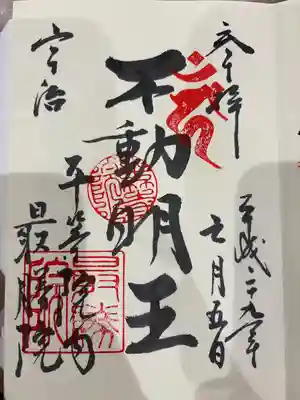 奉拝
平成二九年
七月五日
不動明王
宇治
平等院内
最勝院